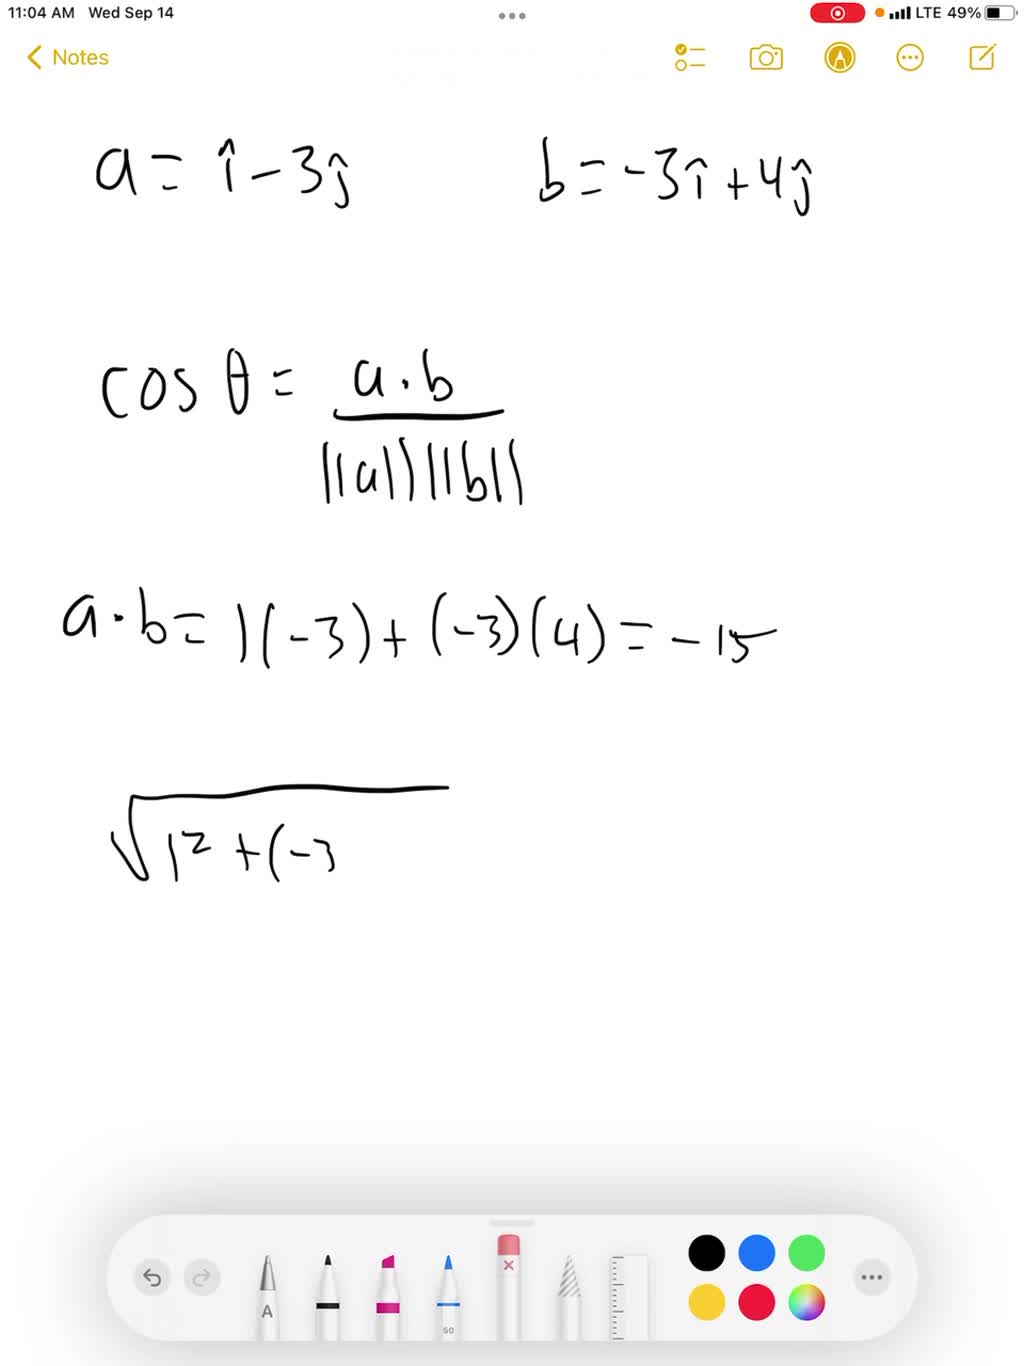 11:04 AM Wed Sep 14 LTE 49%
Notes
a = î - 3ĵ b = -3î + 4ĵ
cos θ = a · b / ||a|| ||b||
a · b = 1(-3) + (-3)(4) = -15
√1² + (-3
A 50